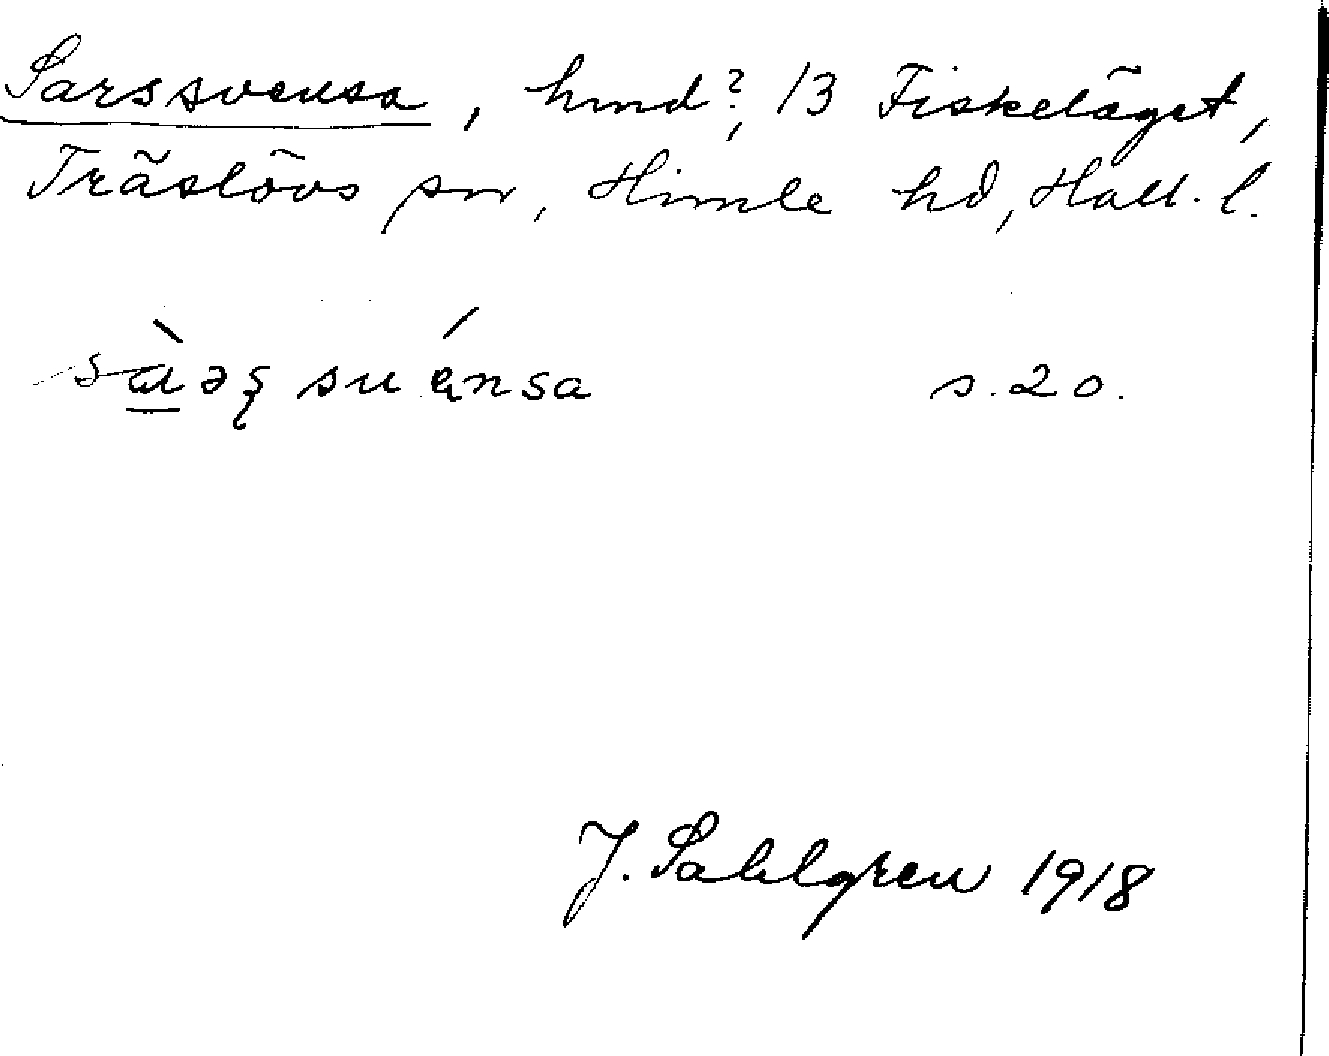 Sarssvensa, hmd?, 13 Fiskeläget,
Träslövs sn, Himle hd, Hall. l.
s. 20.
J. Sahlgren 1918